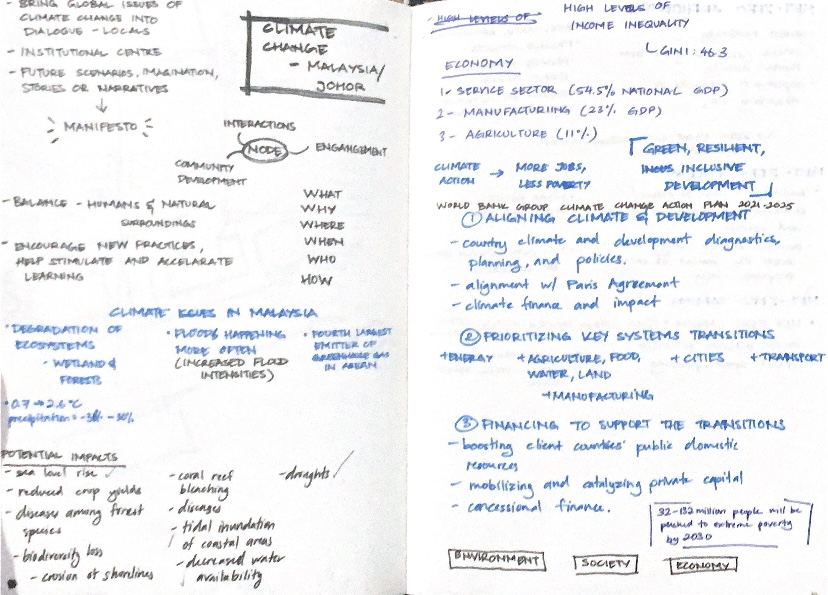 - BRING GLOBAL ISSUES OF
CLIMATE CHANGE INTO
DIALOGUE - LOCALS
- INSTITUTIONAL CENTRE
- FUTURE SCENARIOS, IMAGINATION,
STORIES OR NARRATIVES
↓
MANIFESTO
CLIMATE
CHANGE
- MALAYSIA/
JOHOR
INTERACTIONS
NODE
ENGANGEMENT
COMMUNITY
DEVELOPMENT
- BALANCE - HUMANS & NATURAL
SURROUNDINGS
- ENCOURAGE NEW PRACTICES,
HELP STIMULATE AND ACCELARATE
LEARNING
WHAT
WHY
WHERE
WHEN
WHO
HOW
CLIMATE ISSUES IN MALAYSIA
• DEGRADATION OF
ECOSYSTEMS
- WETLAND &
FORESTS
• FLOODS HAPPENING
MORE OFTEN
(INCREASED FLOOD
INTENSITIES)
• FOURTH LARGEST
EMITTER OF
GREENHOUSE GAS
IN ASEAN
• 0.7 → 2.6°C
precipitation = -30% - 30%
POTENTIAL IMPACTS
- sea level rise ✓
- reduced crop yields
- diseases among forest
species
- biodiversity loss
- erosion of shorelines
- coral reef
bleaching
- diseases
- tidal inundation
of coastal areas
- decreased water
availability
- droughts ✓
- HIGH LEVELS OF
HIGH LEVELS OF
INCOME INEQUALITY
GINI: 46.3
ECONOMY
1 - SERVICE SECTOR (54.5% NATIONAL GDP)
2 - MANUFACTURIING (23% GDP)
3 - AGRICULTURE (11%)
CLIMATE
ACTION
→ MORE JOBS,
LESS POVERTY
GREEN, RESILIENT,
INCLUSIVE
DEVELOPMENT
WORLD BANK GROUP CLIMATE CHANGE ACTION PLAN 2021-2025
① ALIGNING CLIMATE & DEVELOPMENT
- country climate and development diagnostics,
planning, and policies.
- alignment w/ Paris Agreement
- climate finance and impact
② PRIORITIZING KEY SYSTEMS TRANSITIONS
+ ENERGY + AGRICULTURE, FOOD, + CITIES + TRANSPORT
WATER, LAND
+ MANUFACTURING
③ FINANCING TO SUPPORT THE TRANSITIONS
- boosting client countries' public domestic
resources
- mobilizing and catalyzing private capital
- concessional finance.
32-132 million people will be
pushed to extreme poverty
by 2030
ENVIRONMENT
SOCIETY
ECONOMY